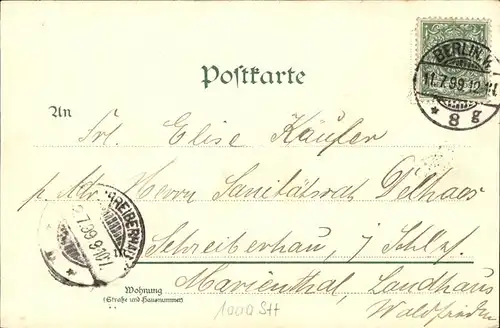 Postkarte
BERLIN, W.
11.7.99.12-1N.
* 8 g
An
Frl. Elise Käufer
p. Adr. Herrn Sanitätsrat Delhaes
SCHREIBERHAU
7.99.9-10V.
in
Schreiberhau, i/Schles.
Marienthal, Landhaus
Wohnung
(Straße und Hausnummer)
1000 SH
Waldfrieden